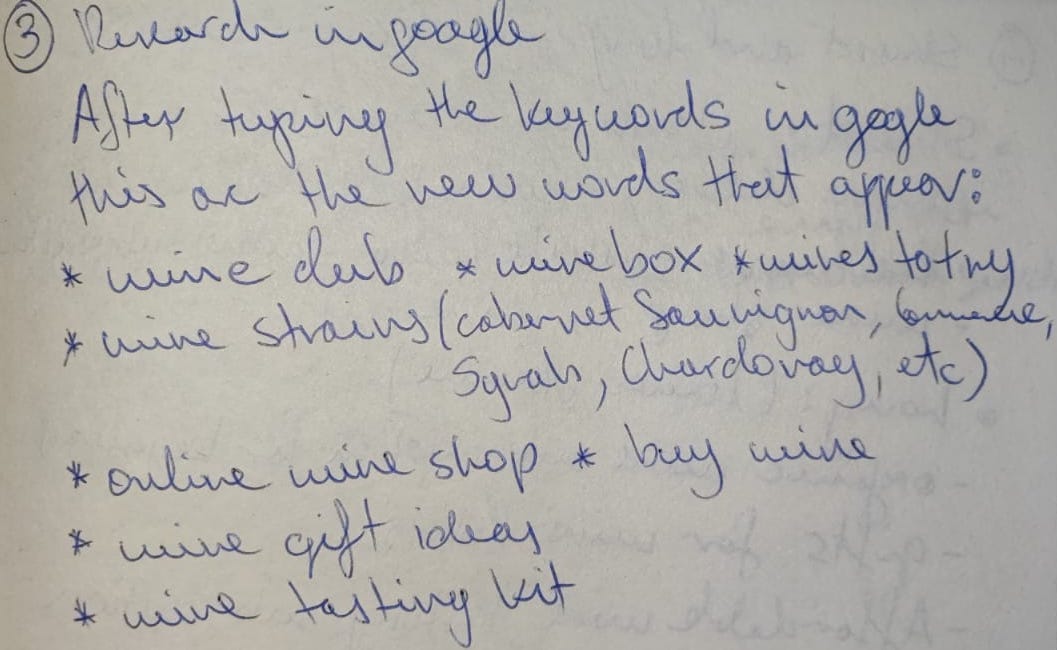 ③ Research in google
After typing the keywords in google
this are the new words that appear:
* wine club * wine box * wines to try
* wine strains (cabernet Sauvignon,
Syrah, Chardonay, etc)
* online wine shop * buy wine
* wine gift ideas
* wine tasting kit